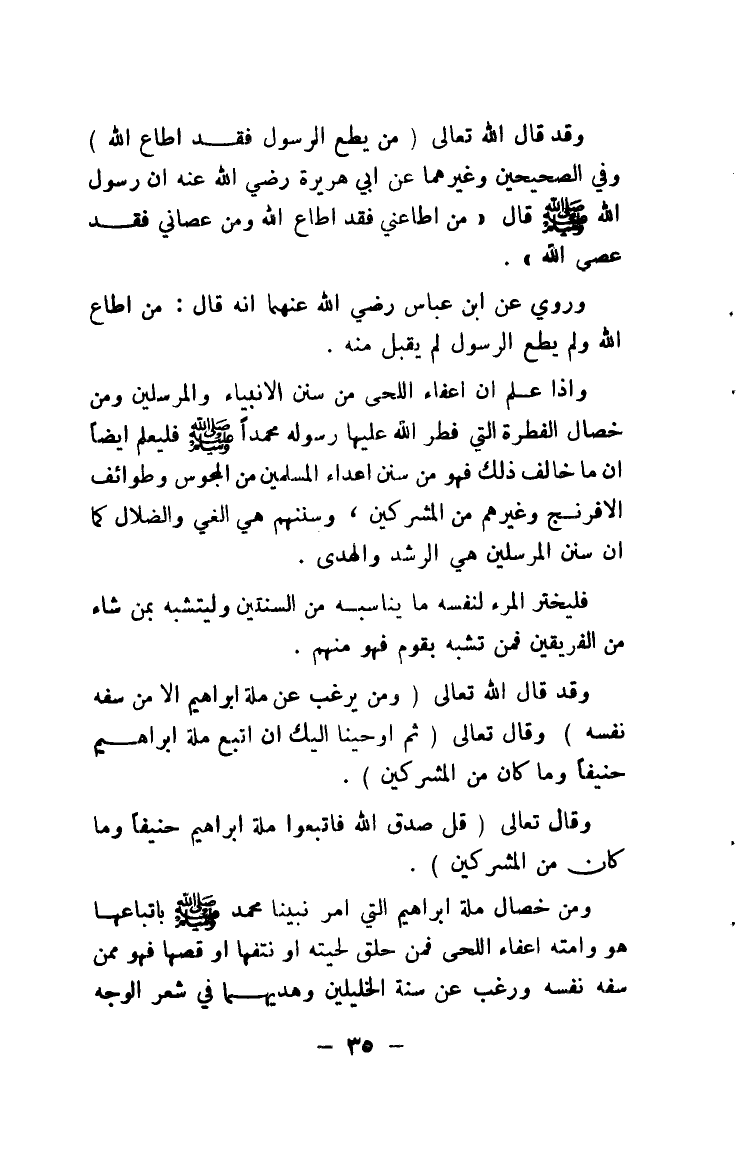 وقد قال الله تعالى ( من يطع الرسول فقـــد اطاع الله )
وفي الصحيحين وغيرهما عن ابي هريرة رضي الله عنه ان رسول
الله ﷺ قال « من اطاعني فقد اطاع الله ومن عصاني فقـــد
عصى الله » .
وروي عن ابن عباس رضي الله عنهما انه قال : من اطاع
الله ولم يطع الرسول لم يقبل منه .
واذا عـلم ان اعفاء اللحى من سنن الانبياء والمرسلين ومن
خصال الفطرة التي فطر الله عليها رسوله محمداً ﷺ فليعلم ايضاً
ان ما خالف ذلك فهو من سنن اعداء المسلمين من المجوس وطوائف
الافرنـج وغيرهم من المشركين ، وسننهم هي الغي والضلال كما
ان سنن المرسلين هي الرشد والهدى .
فليختر المرء لنفسه ما يناسبـه من السنتين وليتشبه بمن شاء
من الفريقين فمن تشبه بقوم فهو منهم .
وقد قال الله تعالى ( ومن يرغب عن ملة ابراهيم الا من سفه
نفسه ) وقال تعالى ( ثم اوحينا اليك ان اتبع ملة ابراهـــيم
حنيفاً وما كان من المشركين ) .
وقال تعالى ( قل صدق الله فاتبعوا ملة ابراهيم حنيفاً وما
كان من المشركين ) .
ومن خصال ملة ابراهيم التي امر نبينا محمد ﷺ باتباعهـا
هو وامته اعفاء اللحى فمن حلق لحيته او نتفها او قصها فهو ممن
سفه نفسه ورغب عن سنة الخليلين وهديهـــما في شعر الوجه
– ٣٥ –